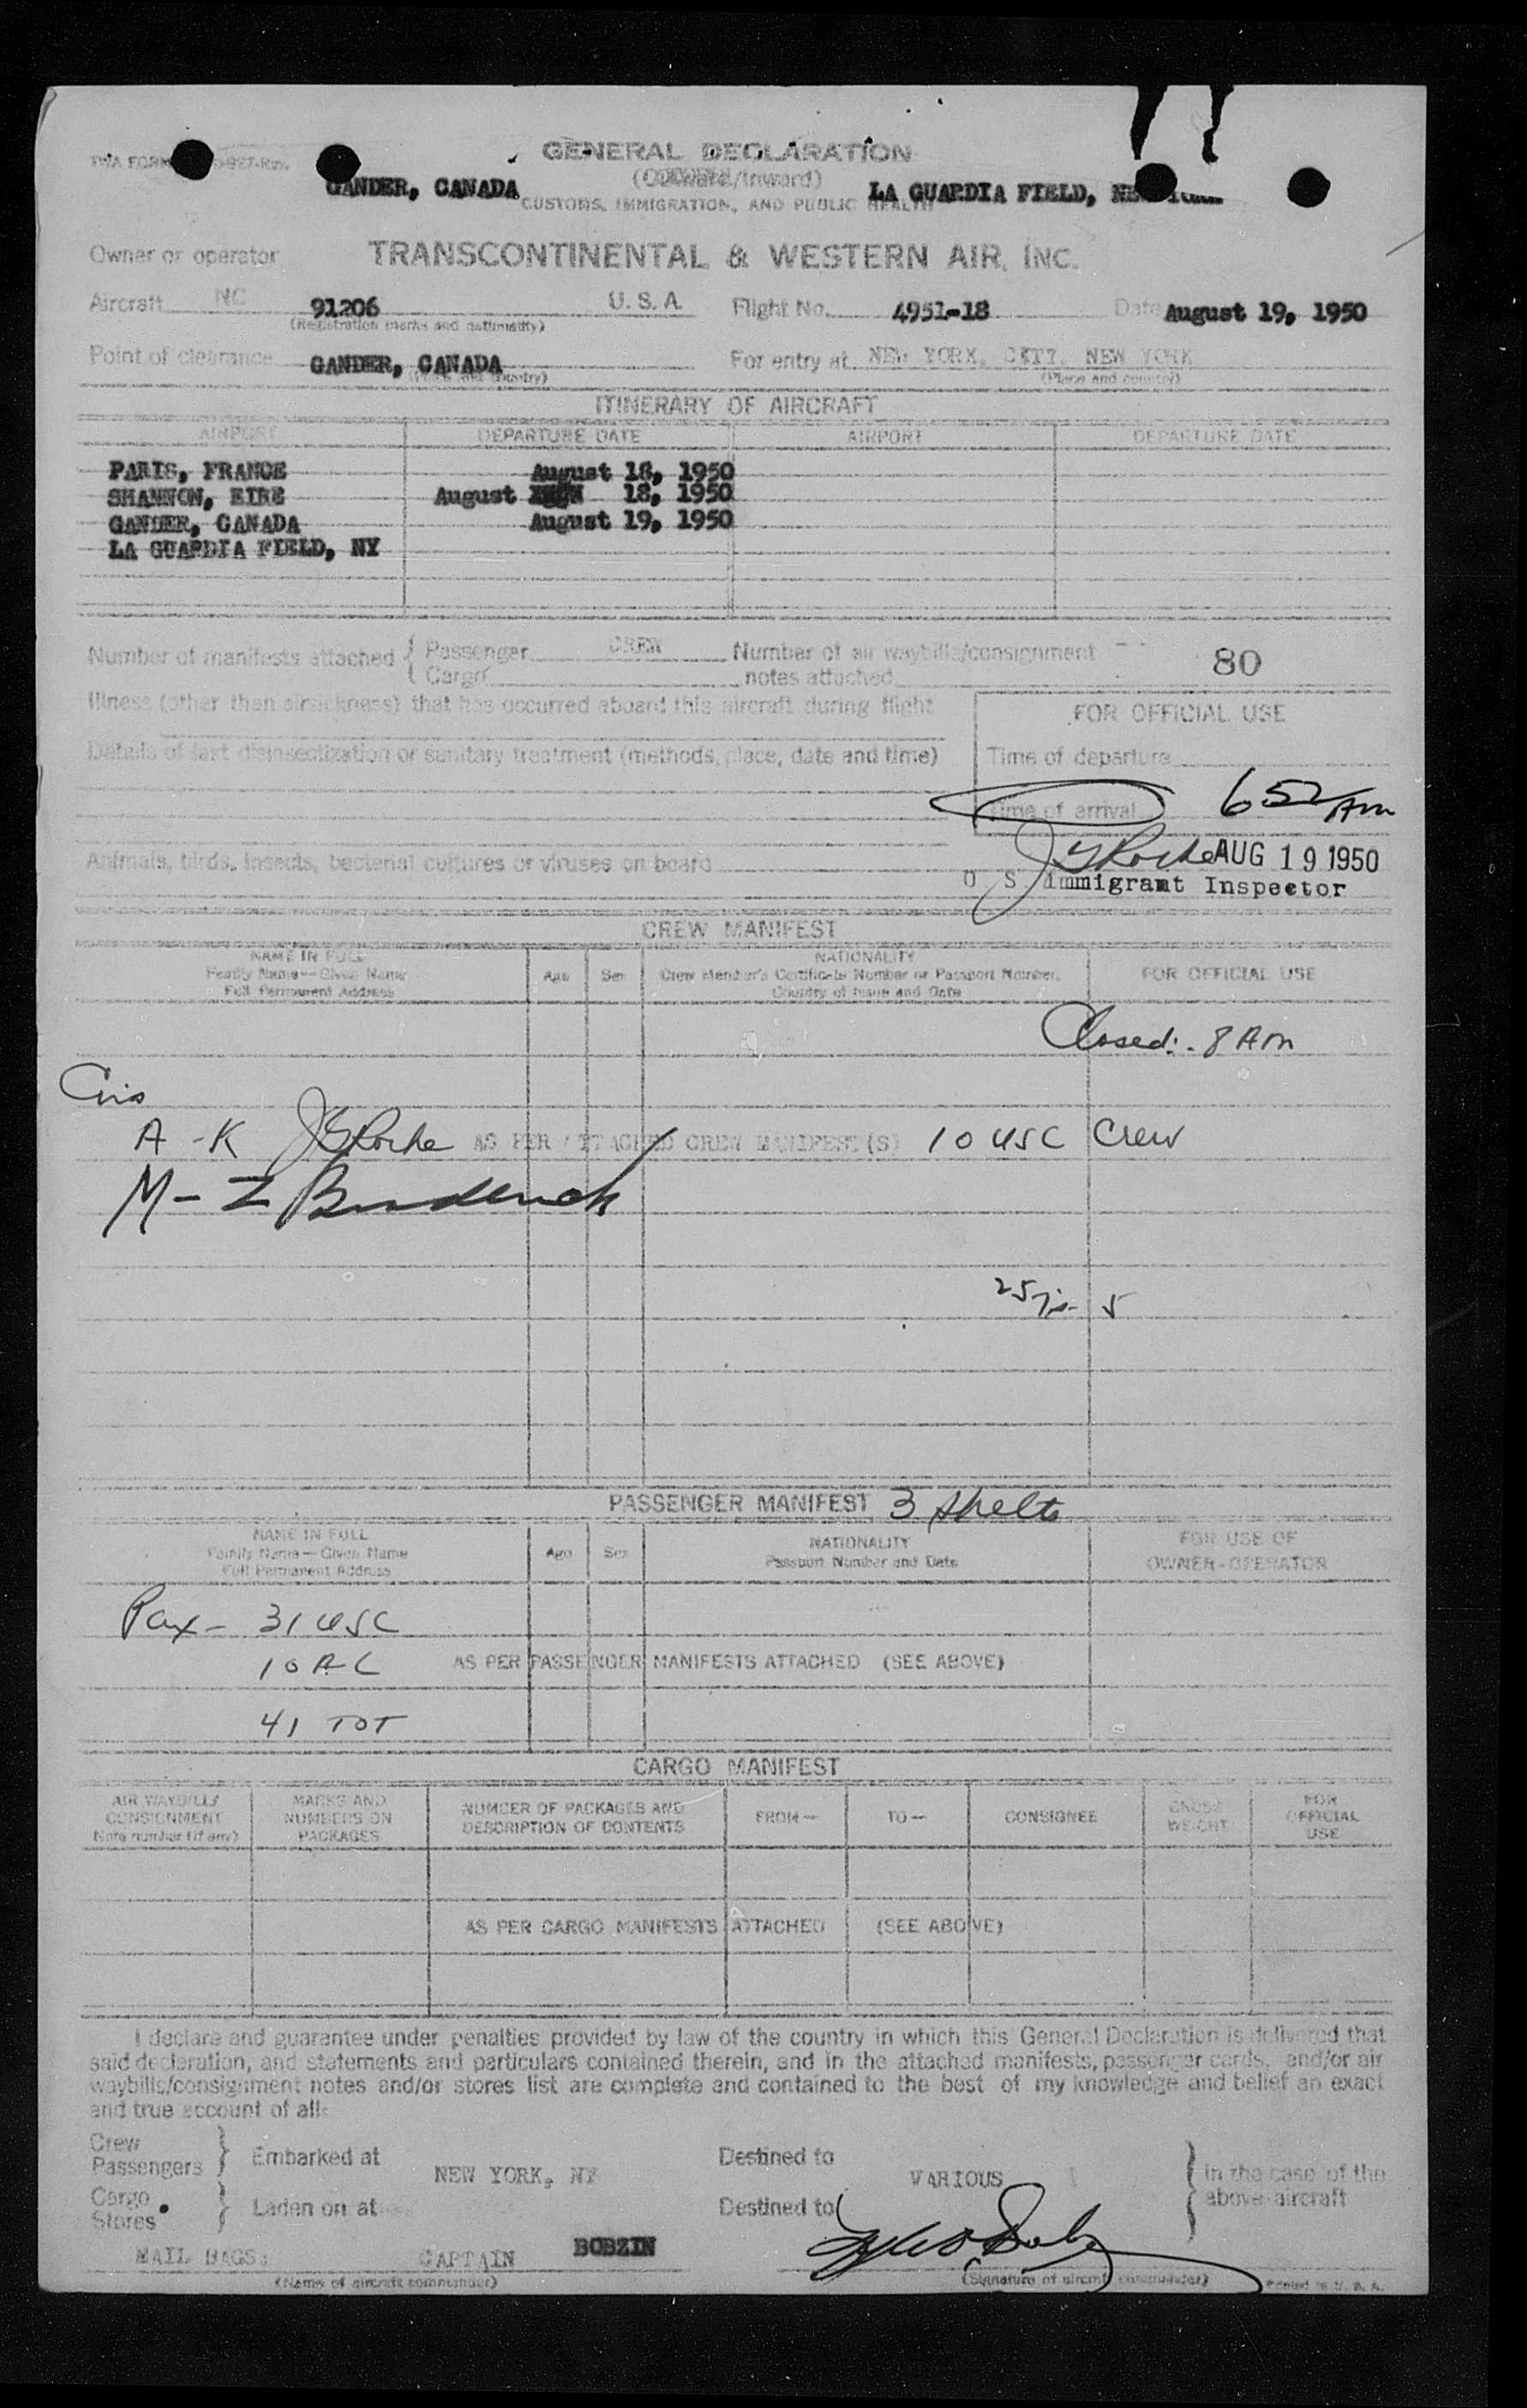 TWA FORM -927-Rev.
GENERAL DECLARATION
(Outward/Inward)
GANDER, CANADA LA GUARDIA FIELD,
CUSTOMS, IMMIGRATION, AND PUBLIC HEALTH
Owner or operator TRANSCONTINENTAL & WESTERN AIR, INC.
Aircraft NC 91206 U. S. A. Flight No. 4951-18 Date August 19, 1950
(Registration marks and nationality)
Point of clearance GANDER, CANADA For entry at NEW YORK, CITY, NEW YORK
(Place and country) (Place and country)
ITINERARY OF AIRCRAFT
AIRPORT DEPARTURE DATE AIRPORT DEPARTURE DATE
PARIS, FRANCE August 18, 1950
SHANNON, EIRE August 18, 1950
GANDER, CANADA August 19, 1950
LA GUARDIA FIELD, NY
Number of manifests attached { Passenger CREW Number of air waybills/consignment 80
Cargo notes attached
Illness (other than airsickness) that has occurred aboard this aircraft during flight
FOR OFFICIAL USE
Details of last disinsectization or sanitary treatment (methods, place, date and time)
Time of departure
Time of arrival 652 Am
Animals, birds, insects, bacterial cultures or viruses on board
AUG 19 1950
S Immigrant Inspector
CREW MANIFEST
NAME IN FULL
Family Name—Given Name
Full Permanent Address
Age Sex
NATIONALITY
Crew Member's Certificate Number or Passport Number,
Country of Issue and Date
FOR OFFICIAL USE
Closed:- 8 Am
A-K JGRoche AS PER ATTACHED CREW MANIFEST(S) 10 USC Crew
M-Z Broderick
5
PASSENGER MANIFEST 3 sheets
NAME IN FULL
Family Name—Given Name
Full Permanent Address
Age Sex
NATIONALITY
Passport Number and Date
FOR USE OF
OWNER-OPERATOR
Pax - 31 USC
10 AL AS PER PASSENGER MANIFESTS ATTACHED (SEE ABOVE)
41 TOT
CARGO MANIFEST
AIR WAYBILLS/
CONSIGNMENT
Note number (if any)
MARKS AND
NUMBERS ON
PACKAGES
NUMBER OF PACKAGES AND
DESCRIPTION OF CONTENTS
FROM—
TO—
CONSIGNEE
GROSS
WEIGHT
FOR
OFFICIAL
USE
AS PER CARGO MANIFESTS ATTACHED (SEE ABOVE)
I declare and guarantee under penalties provided by law of the country in which this General Declaration is delivered that
said declaration, and statements and particulars contained therein, and in the attached manifests, passenger cards, and/or air
waybills/consignment notes and/or stores list are complete and contained to the best of my knowledge and belief an exact
and true account of all:
Crew
Passengers } Embarked at NEW YORK, NY Destined to VARIOUS } in the case of the
Cargo
Stores } Laden on at Destined to above aircraft
MAIL BAGS: CAPTAIN BOBZIN
(Name of aircraft commander) (Signature of aircraft commander) Printed in U. S. A.